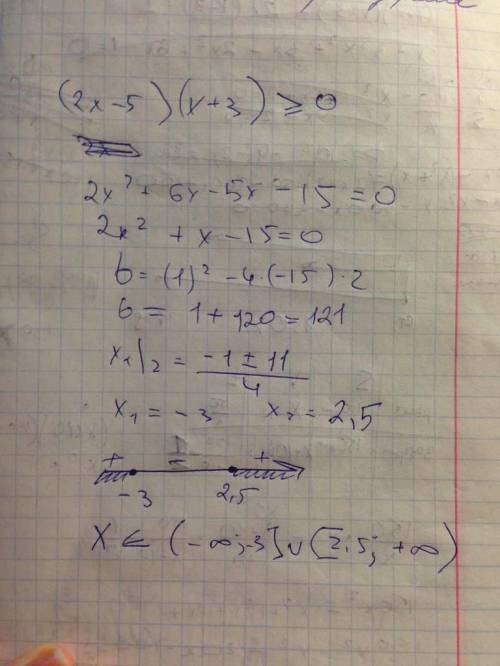 (2x-5)(x+3) ≥ 0
2x² + 6x - 5x - 15 = 0
2x² + x - 15 = 0
b = (1)² - 4·(-15)·2
b = 1 + 120 = 121
x₁/₂ = (-1 ± 11)/4
x₁ = -3 x₂ = 2,5
+ - +
-3 2,5
X ∈ (-∞;-3]∪[2,5; +∞)